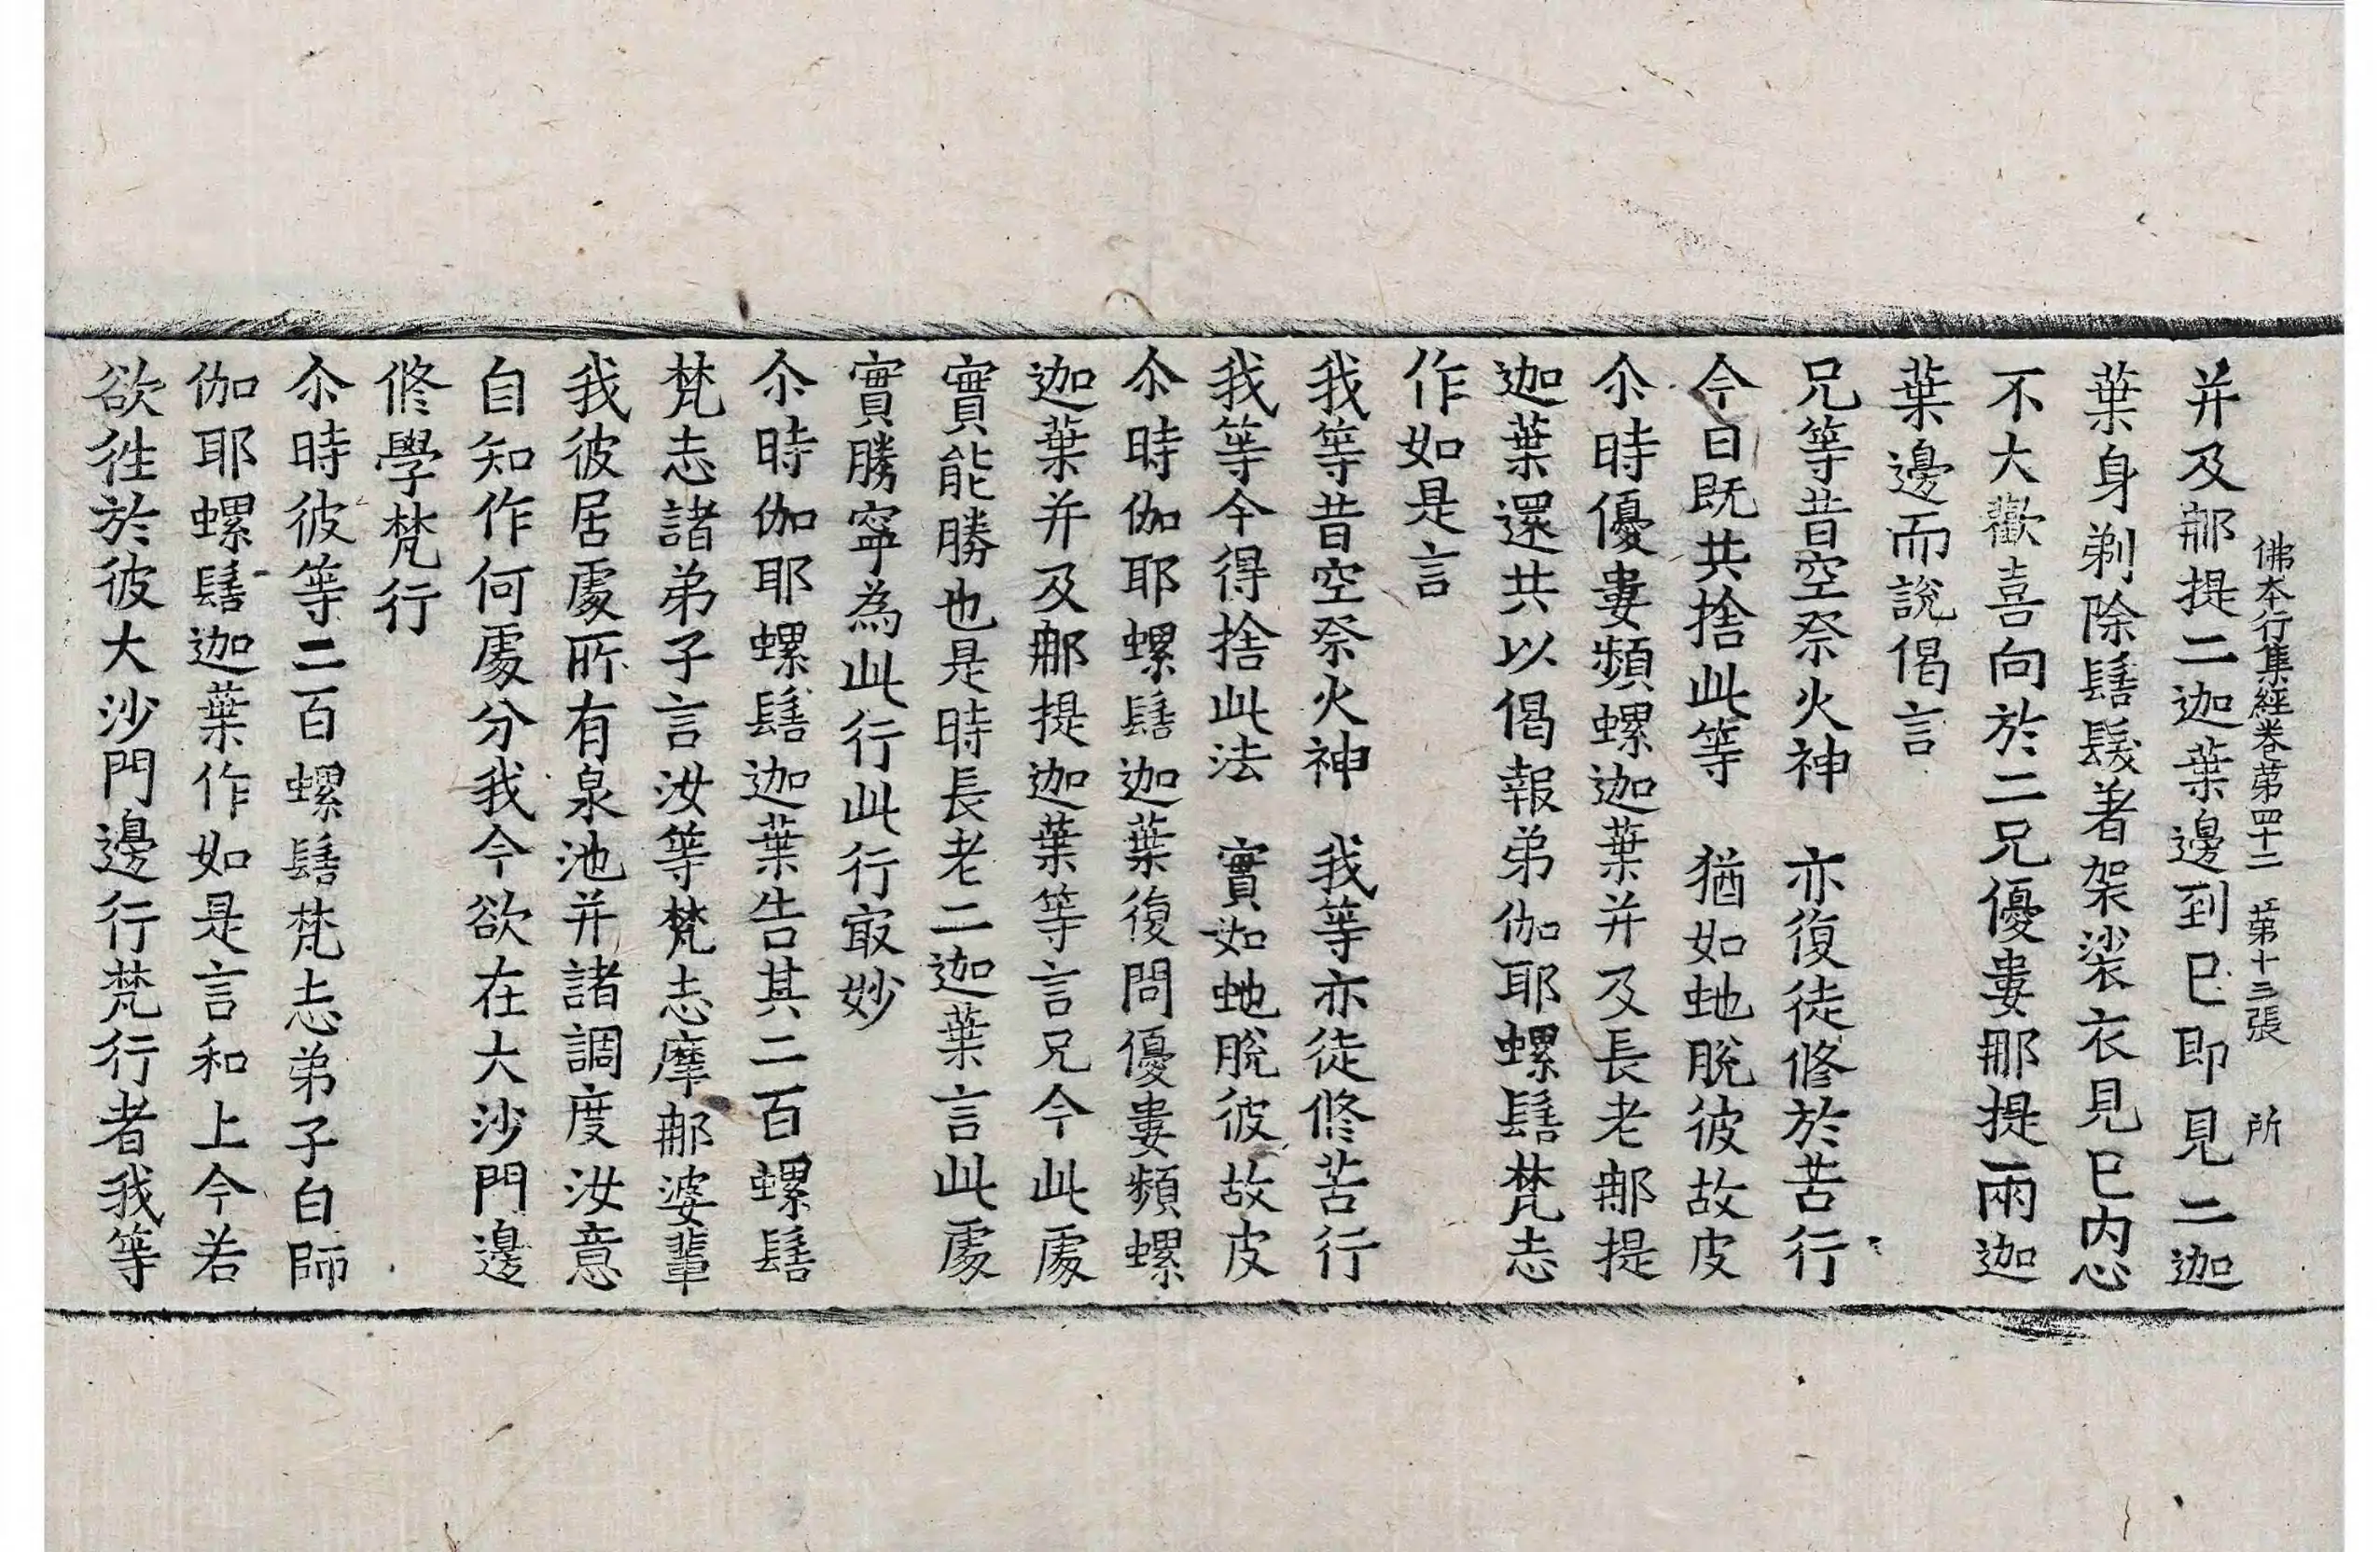 佛本行集經卷第四十二 第十三張 所
并及那提二迦葉邊到已即見二迦
葉身剃除髻髮著袈裟衣見已内心
不大歡喜向於二兄優婁那提兩迦
葉邊而說偈言
兄等昔空祭火神 亦復徒修於苦行
今日既共捨此等 猶如虵脫彼故皮
尒時優婁頻螺迦葉并及長老那提
迦葉還共以偈報弟伽耶螺髻梵志
作如是言
我等昔空祭火神 我等亦徒修苦行
我等今得捨此法 實如虵脫彼故皮
尒時伽耶螺髻迦葉復問優婁頻螺
迦葉并及那提迦葉等言兄今此處
實能勝也是時長老二迦葉言此處
實勝寧為此行此行㝡妙
尒時伽耶螺髻迦葉告其二百螺髻
梵志諸弟子言汝等梵志摩那婆輩
我彼居處所有泉池并諸調度汝意
自知作何處分我今欲在大沙門邊
修學梵行
尒時彼等二百螺髻梵志弟子白師
伽耶螺髻迦葉作如是言和上今若
欲徃於彼大沙門邊行梵行者我等